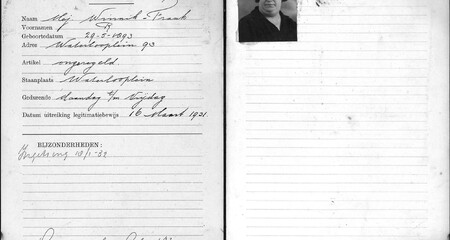 Naam Mej. Winnik-Frank
Voornamen R
Geboortedatum 29-5-1893
Adres Waterlooplein 93
Artikel ongeregeld
Staanplaats Waterlooplein
Gedurende Maandag t/m Vrijdag
Datum uitreiking legitimatiebewijs 16 Maart 1921.
BIJZONDERHEDEN: